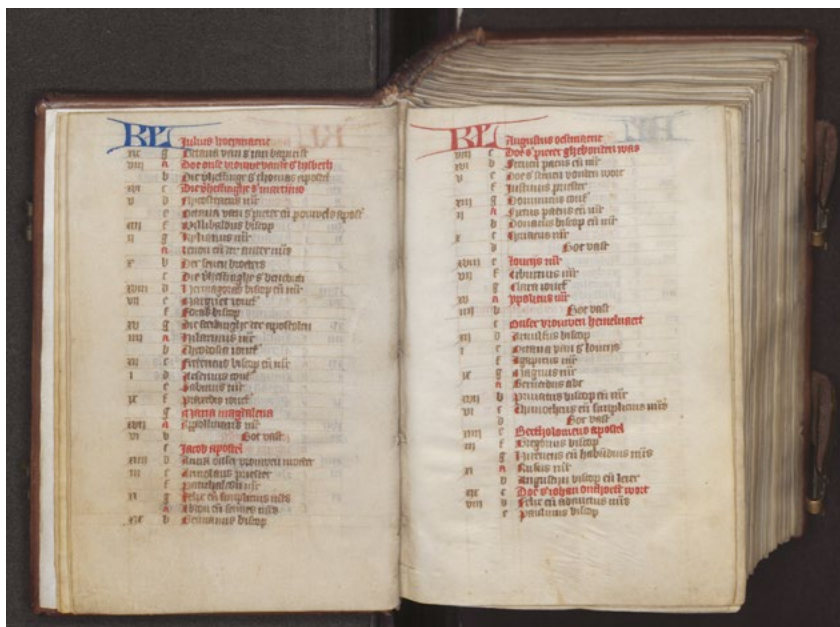 KL Julius hoeymaent
xix g Octava van s jan baptist
viii A Doe onse vrouwe vante s lysbeth
b Die verheffinge s thomas apostel
xvi c Die verheffinghe s martijns
v d
e Octava van s pieter en pouwels apost
xiii f Willibaldus biscop
ii g Kylianus mr
A Zenon en der ander mrs
x b Der seven broeders
c Die verheffinghe s benedictus
xviii d Hermagoras biscop en mr
vii e Margriet joncf
f biscop
xv g Die sceidinghe der apostolen
iiii A Hilarinus mr
b Theodosia joncf
xii c Fredericus biscop en mr
i d Arsenius conf
e Sabinus mr
ix f Praxedis joncf
g Maria magdalena
xvii A Appollinaris mr
vi b Hoe vast
c Jacob apostel
xiiii d Anna onser vrouwen moeder
iii e priester
f Panthaleon mr
xi g Felix en simplicius mrs
A Abdon en sennes mrs
xix b Germanus biscop
KL Augustus oestmaent
viii c Doe s pieter ghebonden was
xvi d Steven paeus en mr
v e Doe s steven vonden wort
f Justinus priester
xiii g Dominicus conf
ii A Sixtus paeus en mr
b Donatus biscop en mr
x c Ciriacus mr
d Hoe vast
xviii e Louwerijs mr
vii f Tiburcius mr
g Clara joncf
xv A Ypolitus mr
iiii b Hoe vast
c Onser vrouwen hemelvaert
xii d Arnulfus biscop
i e Octava van s louwerijs
f Agapitus mr
ix g Magnus mr
A Bernardus abt
xvii b Privatus biscop en mr
vi c Thimotheus en simphorianus mrs
d Hoe vast
xiiii e Bertholomeus apostel
iii f biscop
g Hireneus en habundus mrs
xi A Rufus mr
b Augustijn biscop en leerer
xix c Doe s johan onthooft wort
viii d Felix en adauctus mrs
e Paulinus biscop